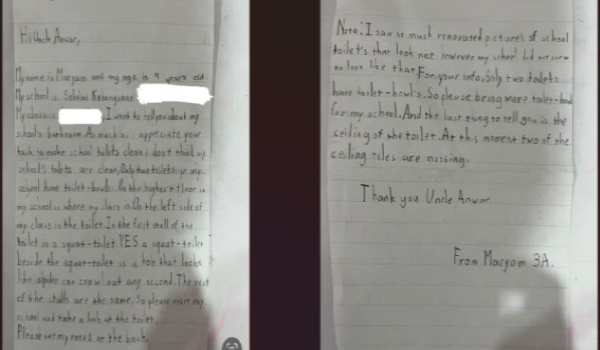 Hi Uncle Anwar,
My name is Maryam and my age is 9 years old.
My school is Sekolah Kebangsaan
My class is I want to tell you about my
school's bathroom. As much as i appreciate your
task to make school toilets clean i don't think my
school's toilets are clean. Only two toilets in my
school have toilet-bowls. On the highest floor in
my school is where my class is. On the left side of
my class is the toilet. In the first stall of the
toilet is a squat-toilet YES a squat-toilet
beside the squat-toilet is a hole that looks
like spider can crawl out any second. The rest
of the stalls are the same. So please visit my
school and take a look at the toilet.
Please see my notes on the back.
Note: I saw so much renovated pictures of school
toilet's that look nice however my school did not seem
to look like that. For your info, only two toilets
have toilet-bowl's. So please bring more toilet-bowl
for my school. And the last thing to tell you is the
ceiling of the toilet. At this moment two of the
ceiling tiles are missing.
Thank you Uncle Anwar
From Maryam 3A.